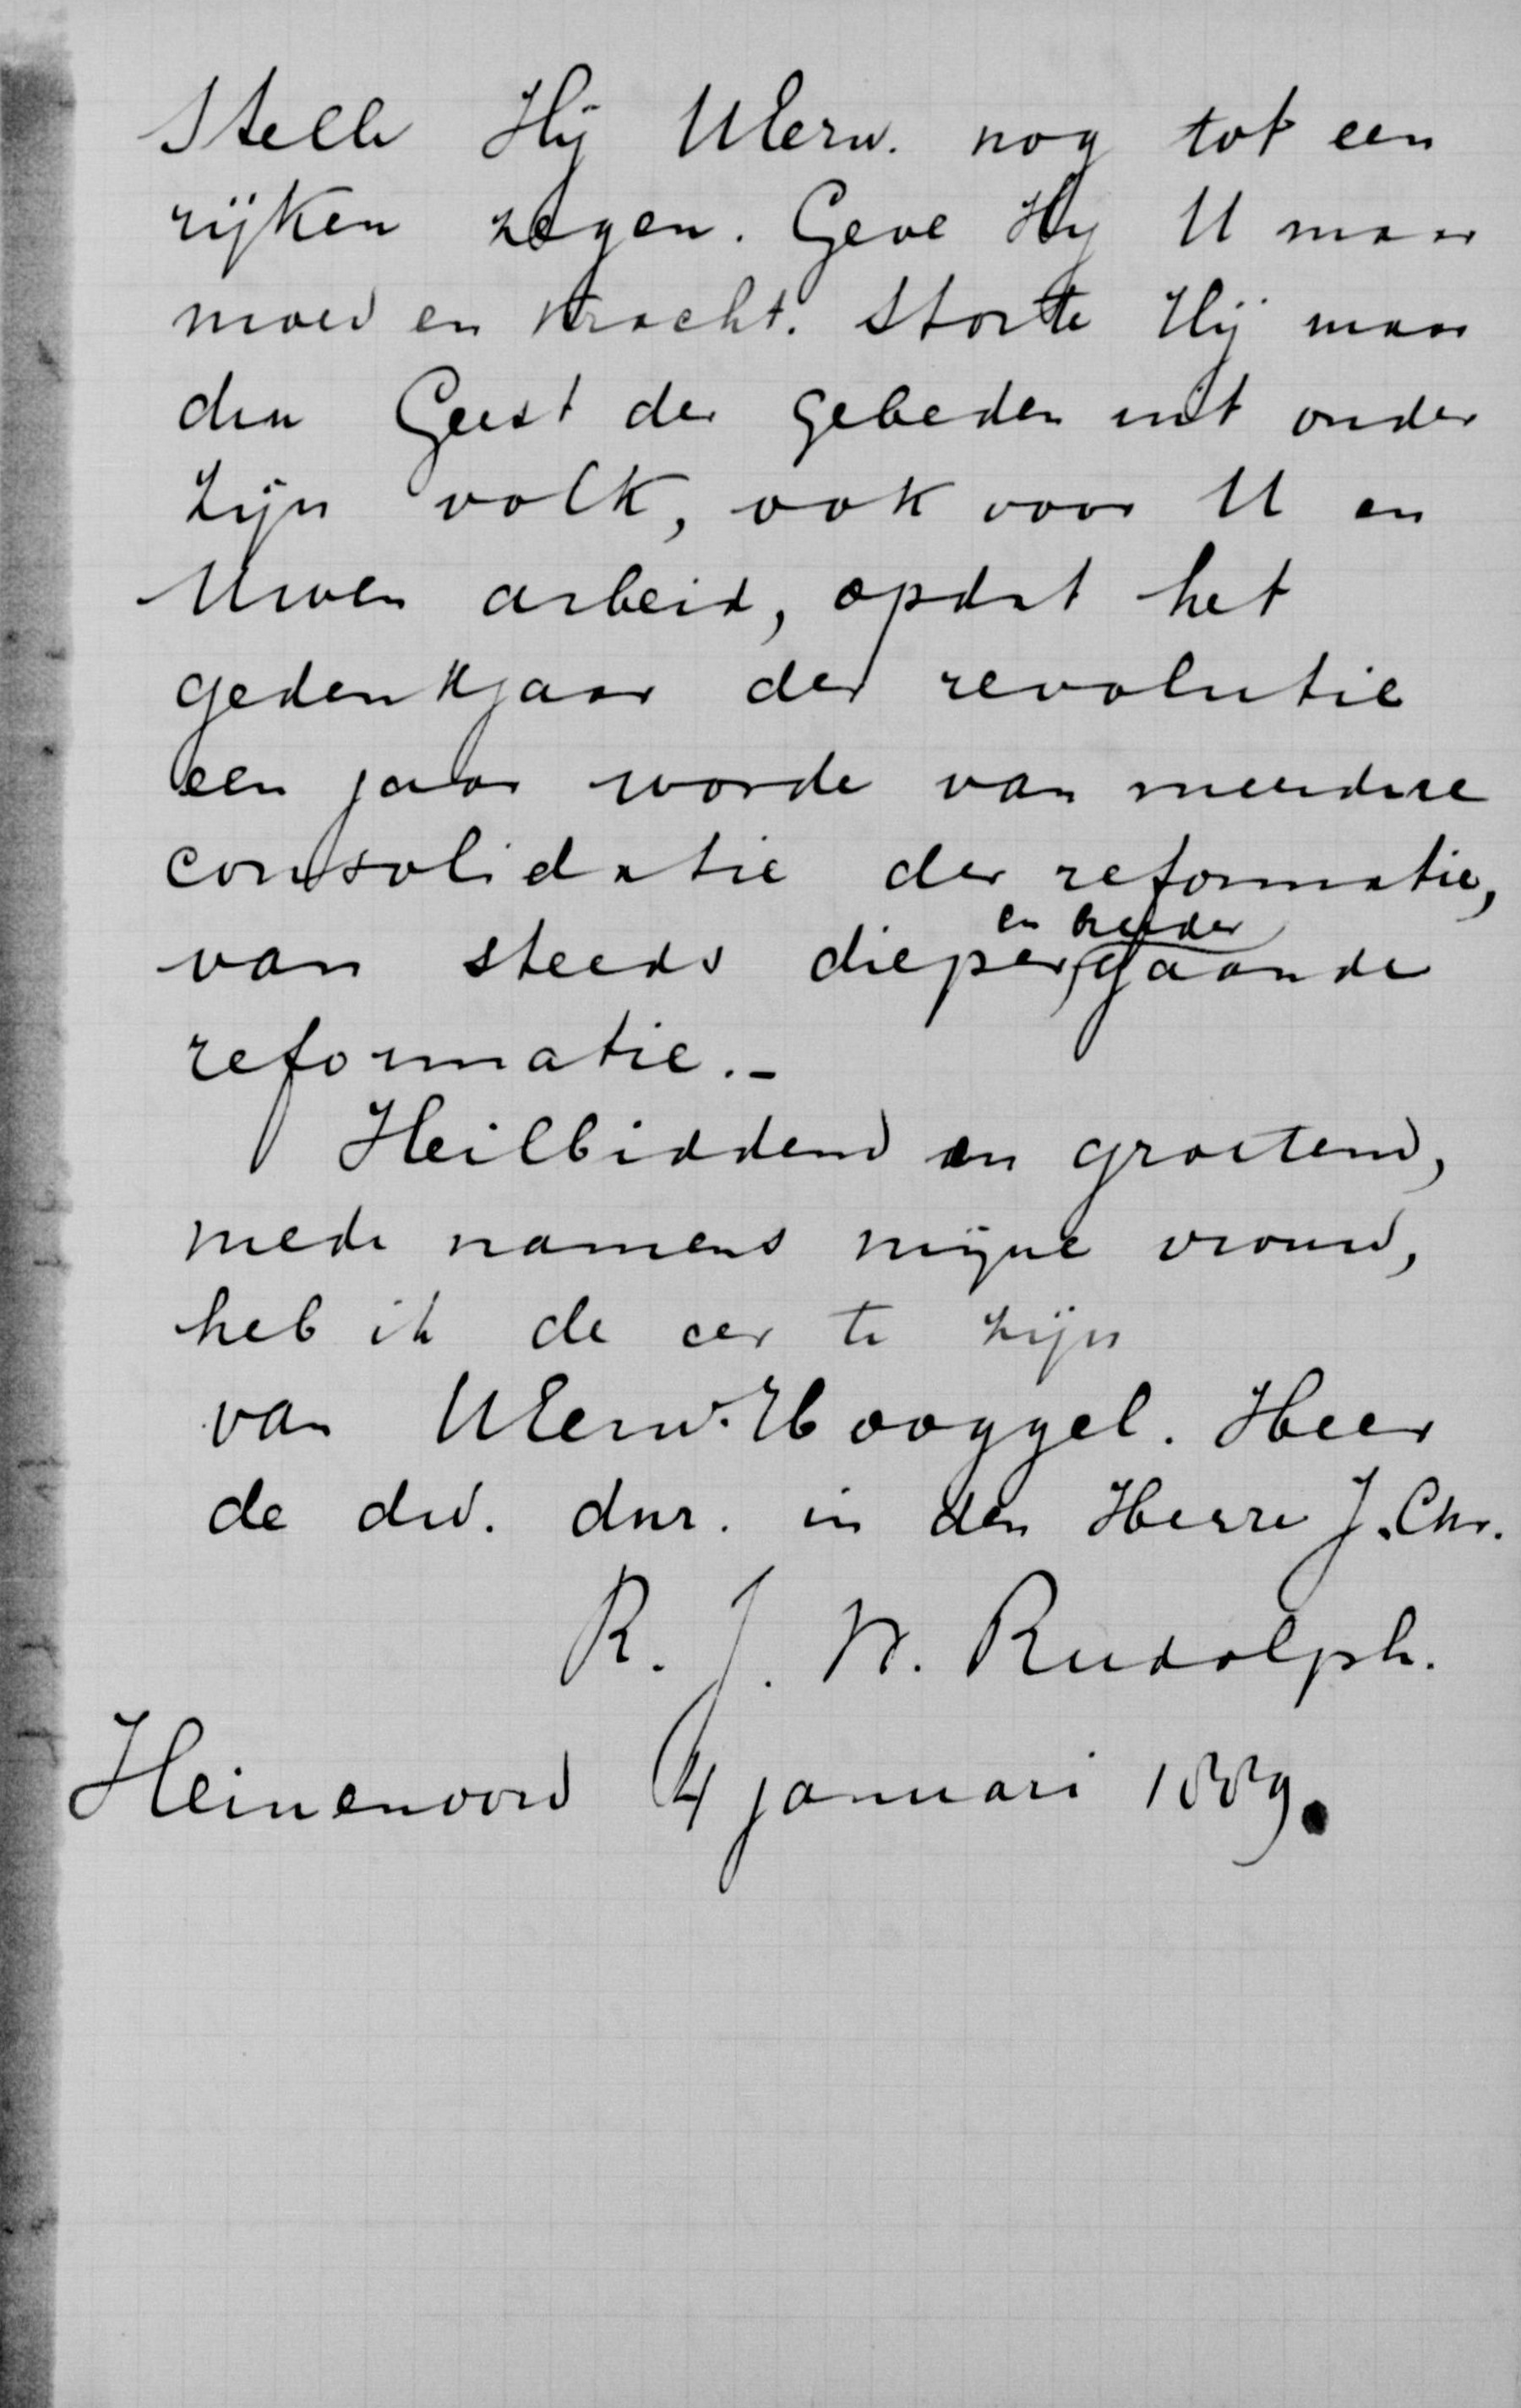 Stelle Hij UEerw. nog tot een
rijken zegen. Geve Hij U maar
moed en kracht. Storte Hij maar
den Geest der gebeden uit onder
Zijn volk, ook voor U en
Uwen arbeid, opdat het
gedenkjaar der revolutie
een jaar worde van meerdere
consolidatie der reformatie,
en breeder
van steeds dieper gaande
reformatie.-
Heilbiddend en groetend,
mede namens mijne vrouw,
heb ik de eer te zijn
van UEerw. Hooggel. Heer
de dw. dnr. in den Heere J. Chr.
R. J. W. Rudolph.
Heinenoord 4 januari 1889.